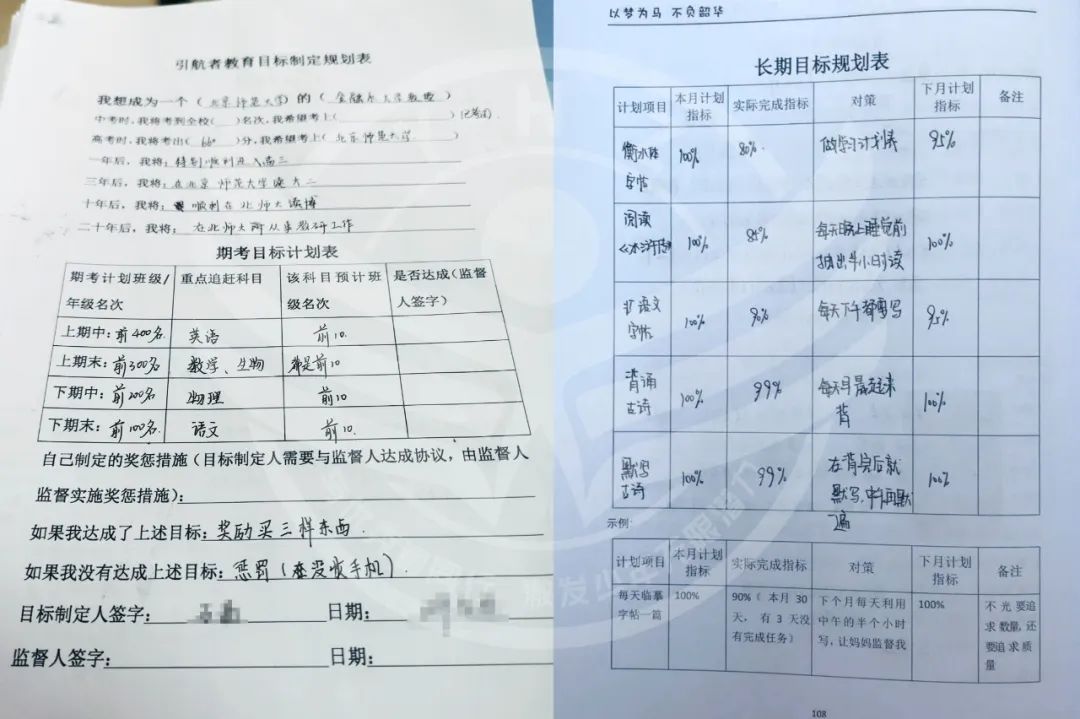 引航者教育目标制定规划表
我想成为一个（北京师范大学）的（金融系大学教授）
中考时，我将考到全校（ ）名次，我希望考上（ ）
高考时，我将考出（660）分，我希望考上（北京师范大学）
一年后，我将：特别顺利进入高三
三年后，我将：在北京师范大学读大二
十年后，我将：顺利在北师大读博
二十年后，我将：在北师大附从事教研工作
期考目标计划表
期考计划班级/年级名次 重点追赶科目 该科目预计班级名次 是否达成（监督人签字）
上期中：前400名 英语 前10.
上期末：前300名 数学、生物 都是前10
下期中：前200名 物理 前10
下期末：前100名. 语文 前10.
自己制定的奖惩措施（目标制定人需要与监督人达成协议，由监督人
监督实施奖惩措施）：
如果我达成了上述目标：奖励买三样东西.
如果我没有达成上述目标：惩罚（在没收手机）.
目标制定人签字： 日期：
监督人签字： 日期：
以梦为马 不负韶华
长期目标规划表
计划项目 本月计划指标 实际完成指标 对策 下月计划指标 备注
衡水体字帖 100% 80%. 做学习计划表 95%
阅读《水浒传》 100% 85% 每天晚上睡觉前抽出半小时读 100%
语文字帖 100% 90% 每天下午都写 95%
背诵古诗 100% 99% 每天早晨起来背 100%
默写古诗 100% 99% 在背完后就默写，中午再默遍 100%
示例：
计划项目 本月计划指标 实际完成指标 对策 下月计划指标 备注
每天临摹字帖一篇 100% 90%（本月30天，有3天没有完成任务） 下个月每天利用中午的半个小时写，让妈妈监督我 100% 不光要追求数量，还要追求质量
108